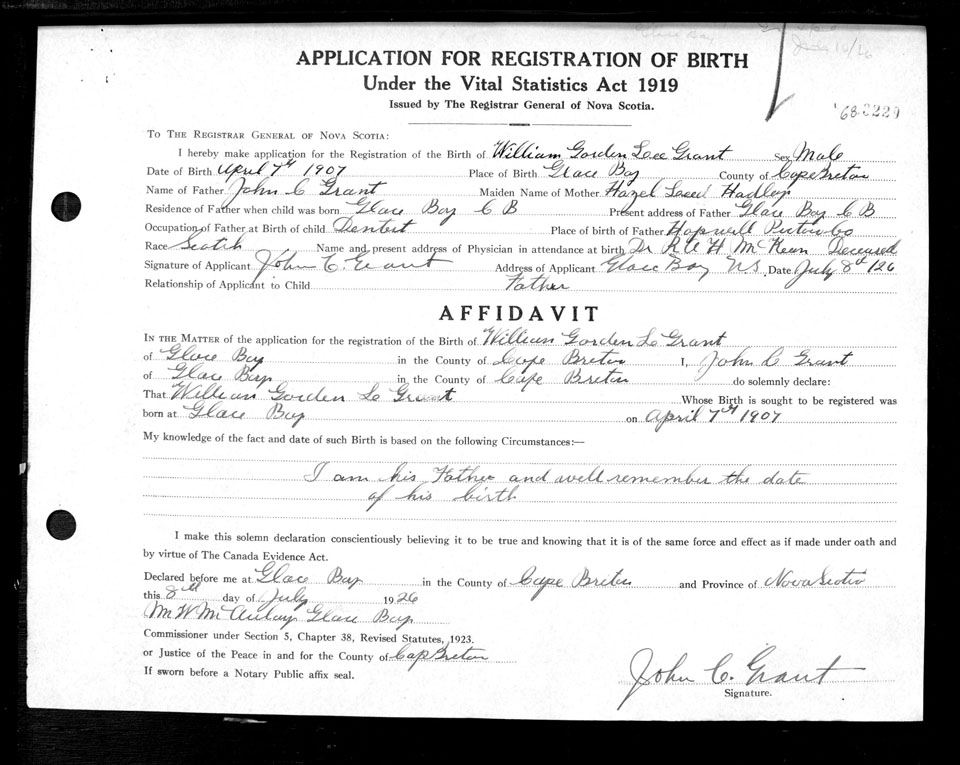 Glace Bay
July 10/26
APPLICATION FOR REGISTRATION OF BIRTH
Under the Vital Statistics Act 1919
Issued by The Registrar General of Nova Scotia.
'68-3229
TO THE REGISTRAR GENERAL OF NOVA SCOTIA:
I hereby make application for the Registration of the Birth of William Gorden Lee Grant Sex Male
Date of Birth April 7th 1907 Place of Birth Glace Bay County of Cape Breton
Name of Father John C Grant Maiden Name of Mother Hazel Hadley
Residence of Father when child was born Glace Bay C B Present address of Father Glace Bay C B
Occupation of Father at Birth of child Dentist Place of birth of Father Hopwell Pictou Co
Race Scotch Name and present address of Physician in attendance at birth Dr R A H McKeen Deceased
Signature of Applicant John C. Grant Address of Applicant Glace Bay N S. Date July 8th 126
Relationship of Applicant to Child Father
AFFIDAVIT
IN THE MATTER of the application for the registration of the Birth of William Gorden Le Grant
of Glace Bay in the County of Cape Breton I, John C Grant
of Glace Bay in the County of Cape Breton do solemnly declare:
That William Gorden Le Grant Whose Birth is sought to be registered was
born at Glace Bay on April 7th 1907
My knowledge of the fact and date of such Birth is based on the following Circumstances:—
I am his Father and well remember the date
of his birth
I make this solemn declaration conscientiously believing it to be true and knowing that it is of the same force and effect as if made under oath and
by virtue of The Canada Evidence Act.
Declared before me at Glace Bay in the County of Cape Breton and Province of Nova Scotia
this 8th day of July 1926
Mc Aulay Glace Bay
Commissioner under Section 5, Chapter 38, Revised Statutes, 1923.
or Justice of the Peace in and for the County of Cap Breton
If sworn before a Notary Public affix seal.
John C. Grant
Signature.